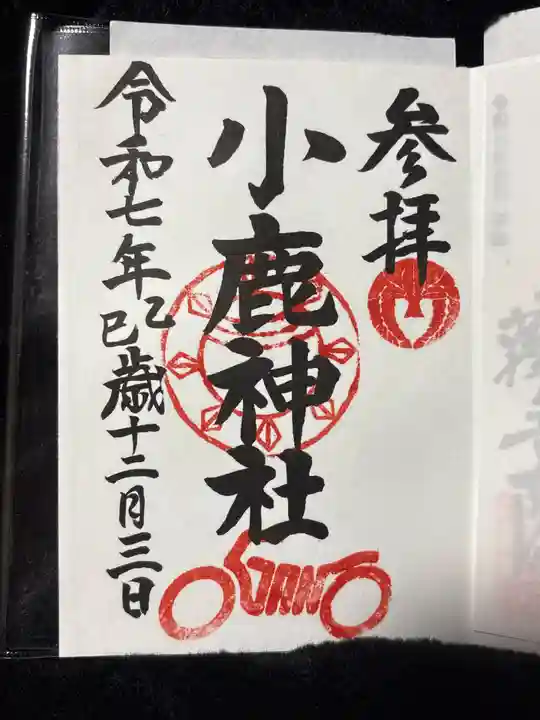 参拝
小鹿神社
令和七年乙巳歳十二月三日